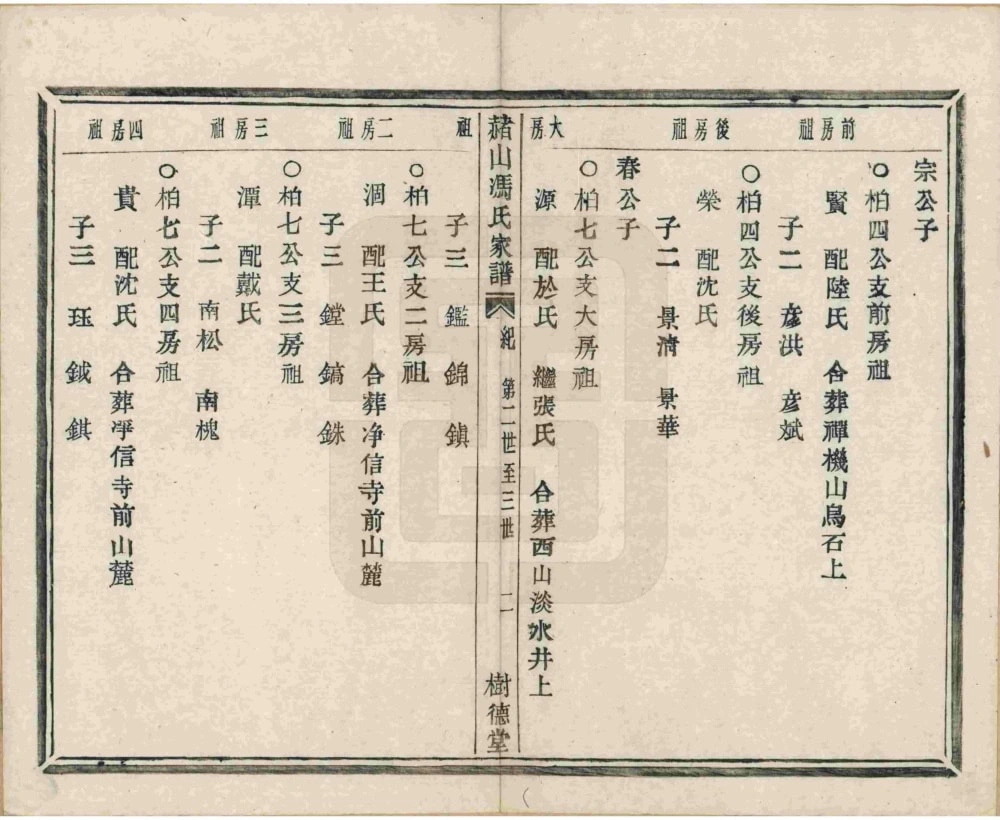 前房祖
後房祖
大房祖
宗公子
○柏四公支前房祖
賢 配陸氏 合葬禪機山烏石上
子二 彦洪 彦斌
○柏四公支後房祖
榮 配沈氏
子二 景清 景華
春公子
○柏七公支大房祖
源 配於氏 繼張氏 合葬西山淡水井上
赭山馮氏家譜 紀 第二世至三世 二 樹德堂
二房祖
三房祖
四房祖
子三 鑑 錦 鎮
○柏七公支二房祖
涸 配王氏 合葬净信寺前山麓
子三 鏜 鎬 銖
○柏七公支三房祖
潭 配戴氏
子二 南松 南槐
○柏七公支四房祖
貴 配沈氏 合葬净信寺前山麓
子三 珏 鉞 錤